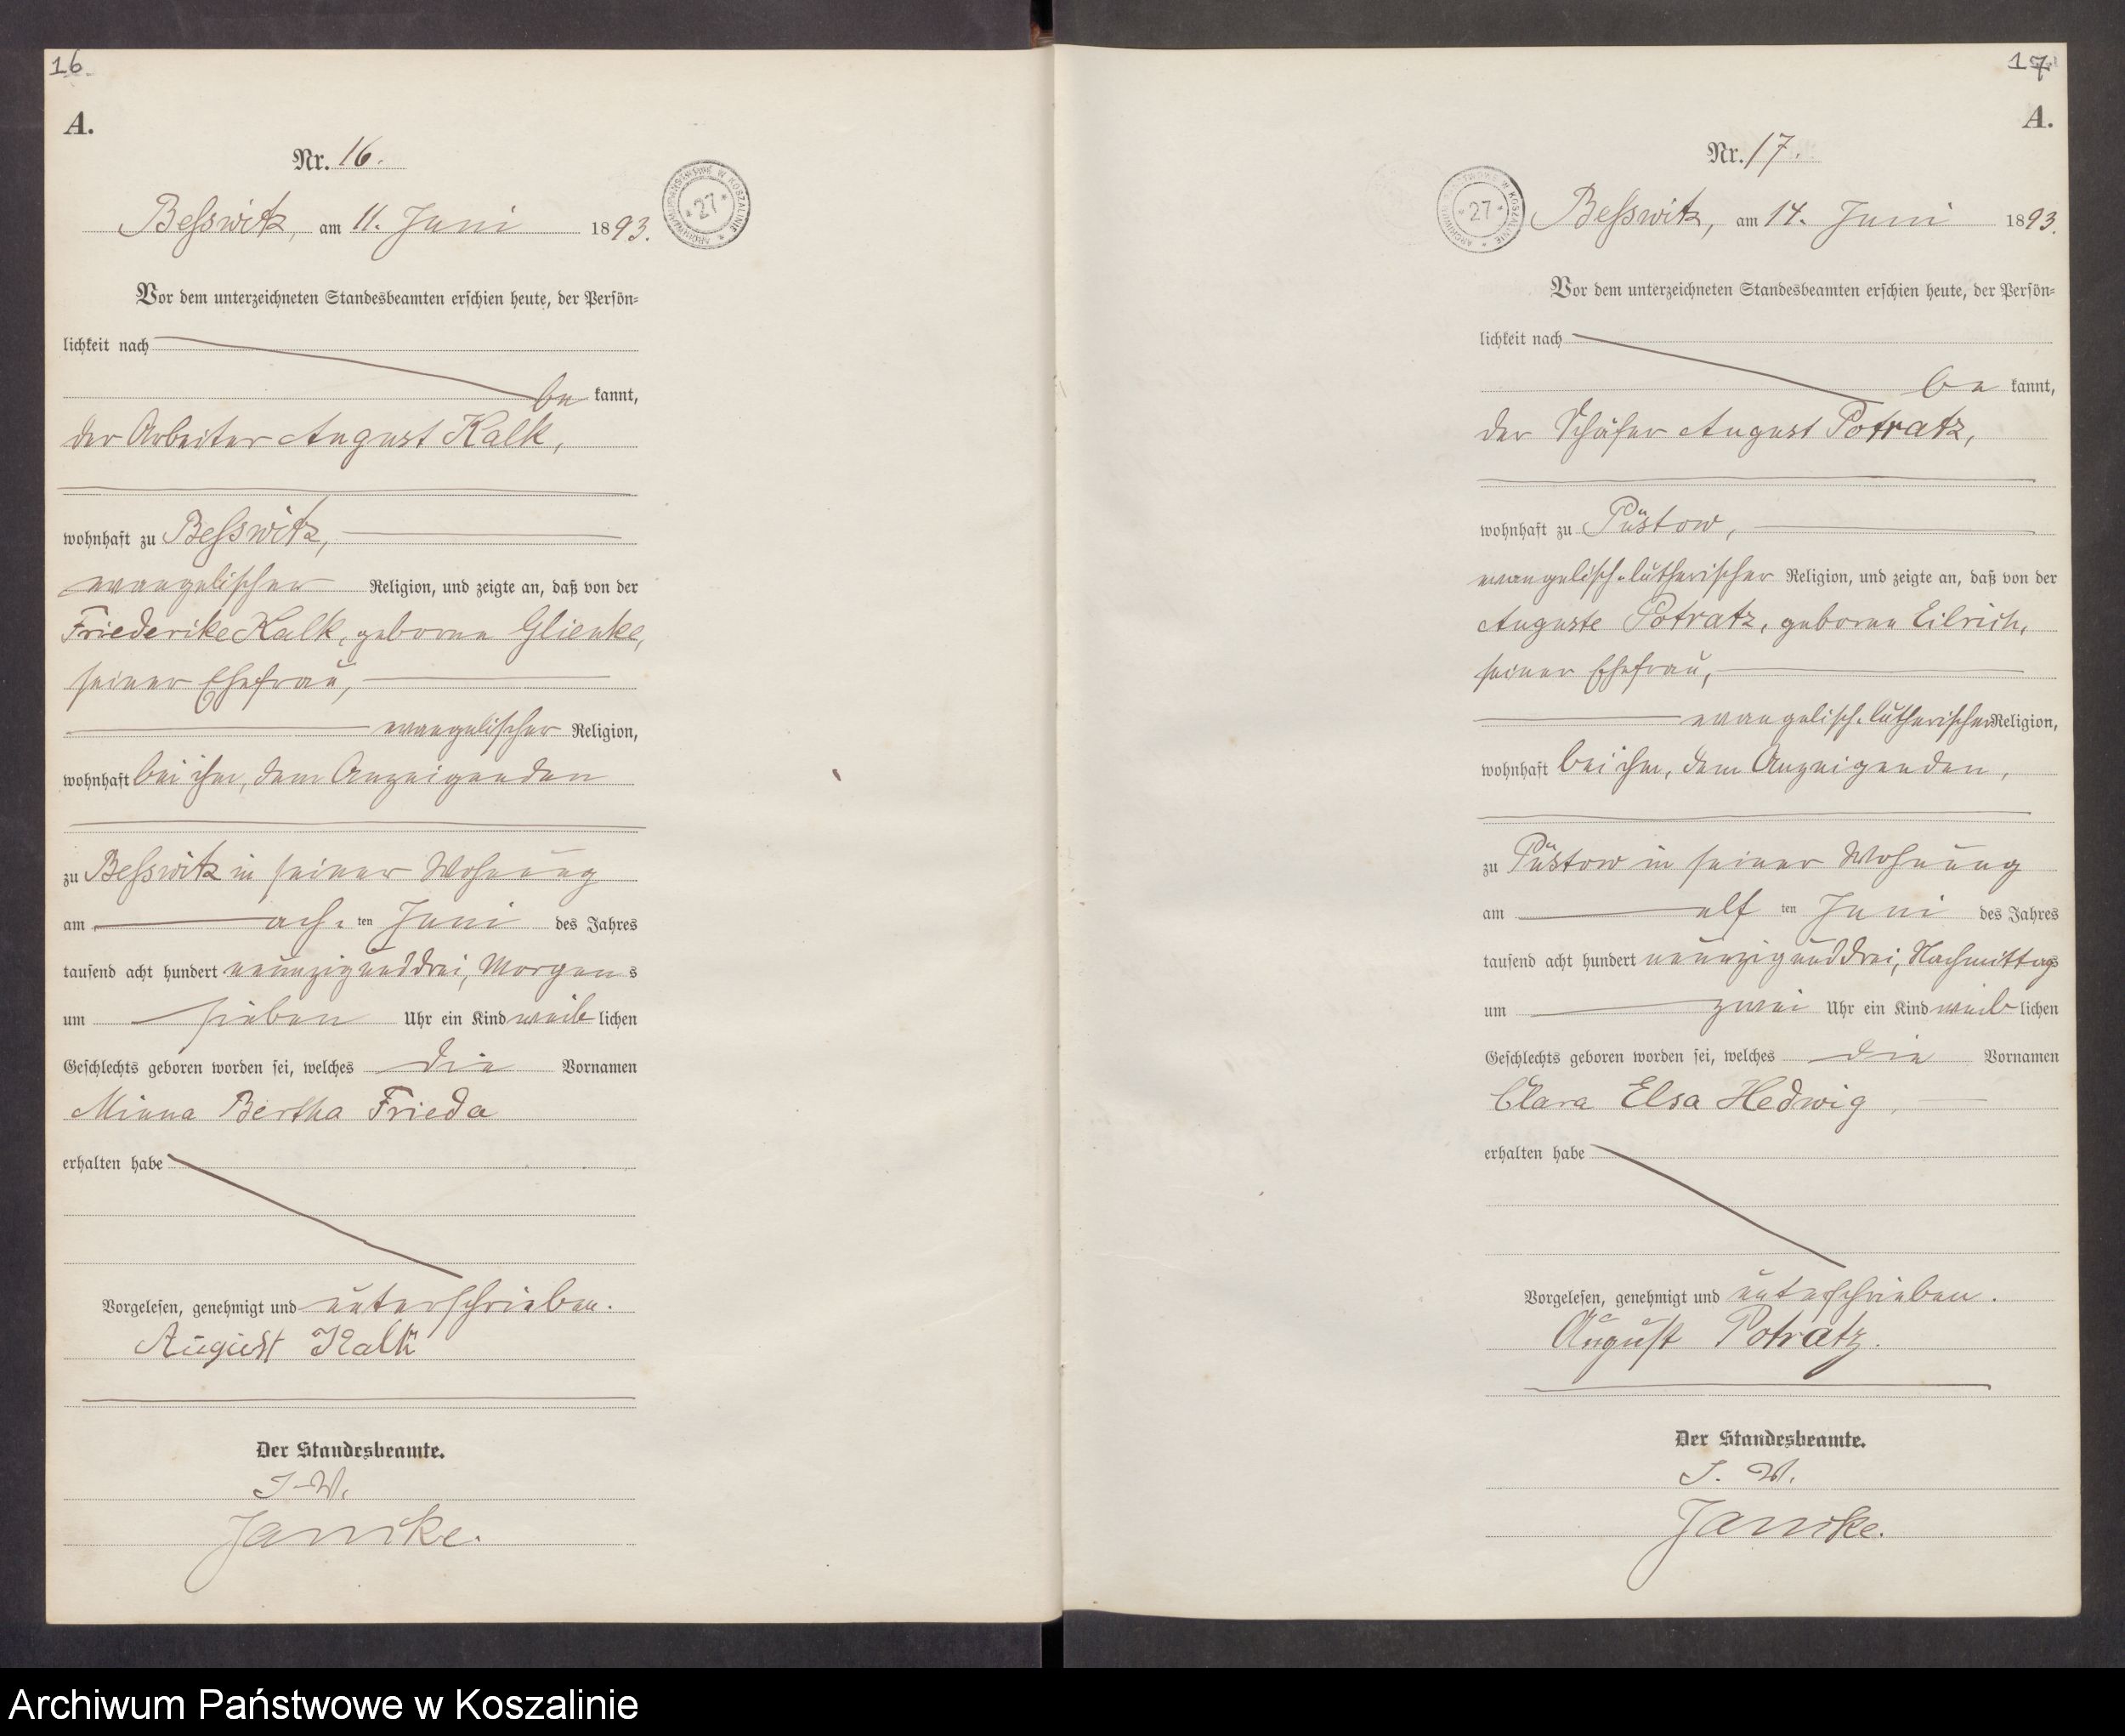 16
A.
Nr. 16.
ARCHIWUM PAŃSTWOWE W KOSZALINIE * 27 *
Beßwitz, am 11. Juni 1893.
Vor dem unterzeichneten Standesbeamten erschien heute, der Persön=
lichkeit nach
be kannt,
der Arbeiter August Kalk,
wohnhaft zu Beßwitz,
evangelischer Religion, und zeigte an, daß von der
Friederike Kalk, geborne Glienke,
seiner Ehefrau,
evangelischer Religion,
wohnhaft bei ihm, dem Anzeigenden
zu Beßwitz in seiner Wohnung
am ach= ten Juni des Jahres
tausend acht hundert neunzig und drei, Morgens
um sieben Uhr ein Kind weib lichen
Geschlechts geboren worden sei, welches die Vornamen
Minna Bertha Frieda
erhalten habe
Vorgelesen, genehmigt und unterschrieben.
August Kalk
Der Standesbeamte.
J. V.
Janike.
17
A.
Nr. 17.
ARCHIWUM PAŃSTWOWE W KOSZALINIE * 27 *
Beßwitz, am 14. Juni 1893.
Vor dem unterzeichneten Standesbeamten erschien heute, der Persön=
lichkeit nach
be kannt,
der Schäfer August Potratz,
wohnhaft zu Püstow,
evangelisch-lutherischer Religion, und zeigte an, daß von der
Auguste Potratz, geborne Eilrich,
seiner Ehefrau,
evangelisch-lutherischer Religion,
wohnhaft bei ihm, dem Anzeigenden,
zu Püstow in seiner Wohnung
am elf ten Juni des Jahres
tausend acht hundert neunzig und drei, Nachmittags
um zwei Uhr ein Kind weib lichen
Geschlechts geboren worden sei, welches die Vornamen
Clara Elsa Hedwig,
erhalten habe
Vorgelesen, genehmigt und unterschrieben.
August Potratz.
Der Standesbeamte.
J. V.
Janike.
Archiwum Państwowe w Koszalinie